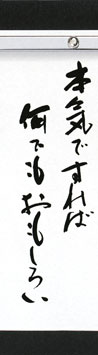 本気ですれば
何でもおもしろい